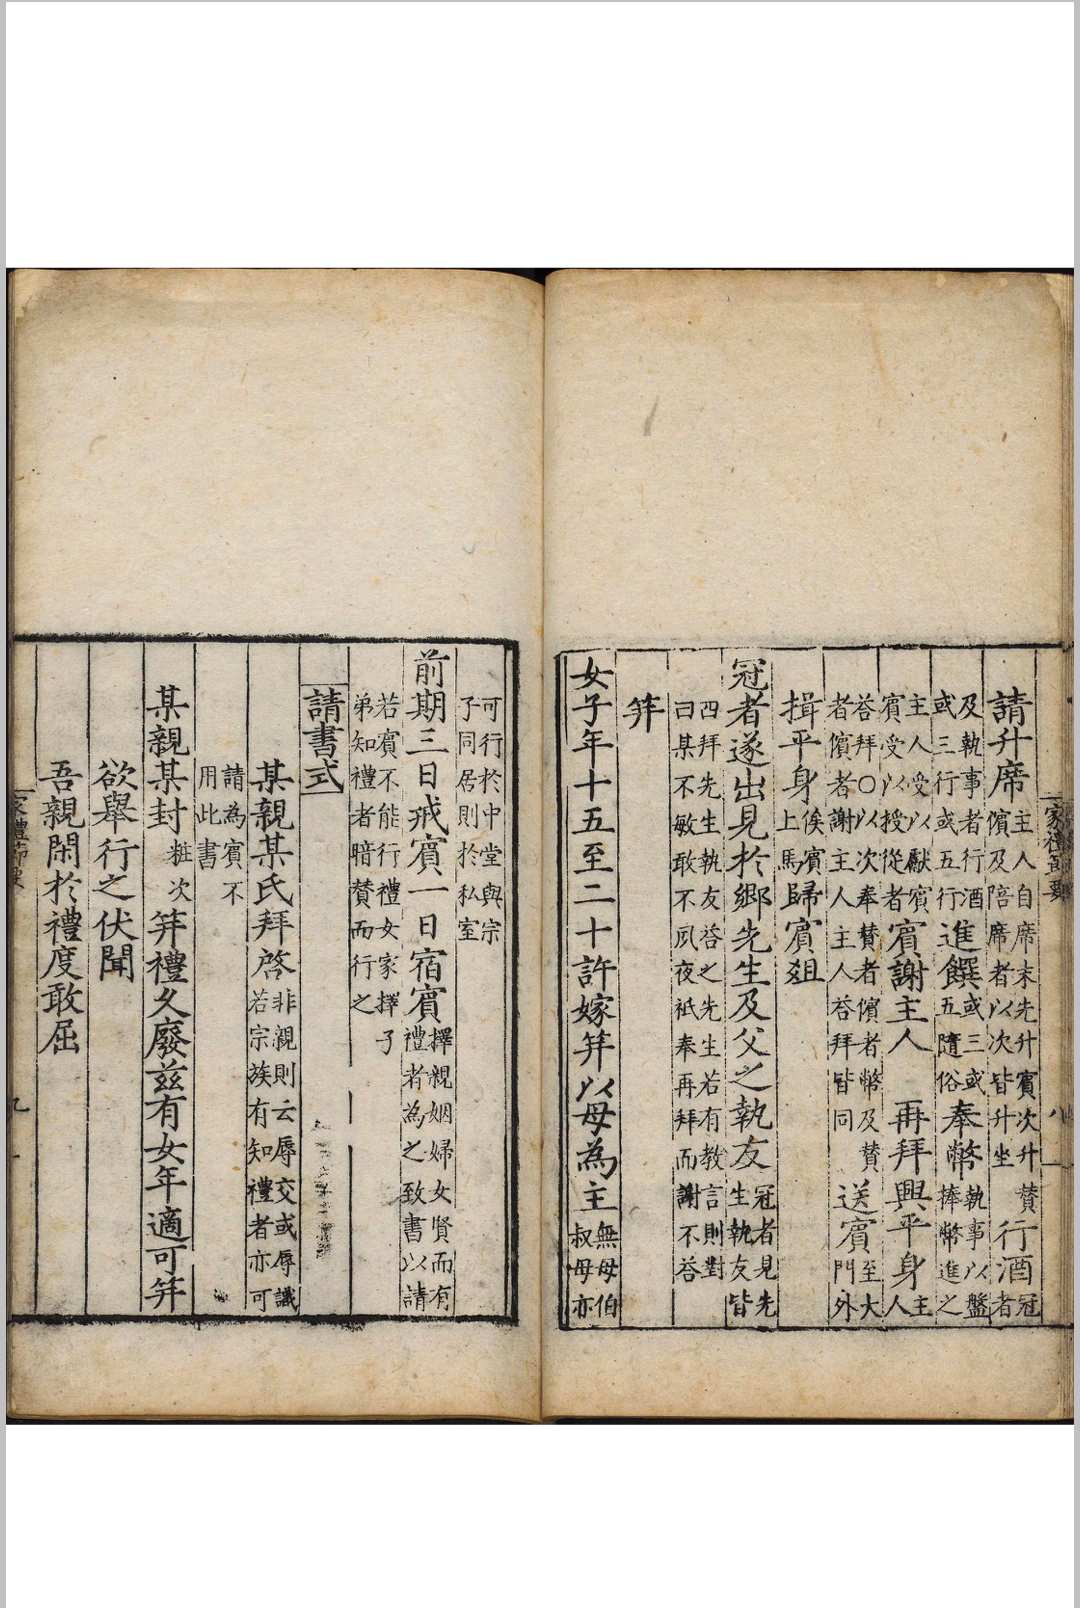 家禮節要
八
請升席主人自席末先升賓次升賛
儐及陪席者以次皆升坐行酒冠者
及執事者行酒
或三行或五行進饌或三或
五隨俗奉幣執事以盤
捧幣進之
主人受以獻賓
賓受以授從者賓謝主人 再拜興平身主
人
荅拜○以次奉賛者儐者幣及賛
者儐者謝主人主人荅拜皆同送賓至大
門外
揖平身俟賓
上馬歸賓俎
冠者遂出見於鄉先生及父之執友冠者見先
生執友皆
四拜先生執友荅之先生若有教言則對
曰某不敏敢不夙夜祗奉再拜而謝不荅
笄
女子年十五至二十許嫁笄以母為主無母伯
叔母亦
可行於中堂與宗
子同居則於私室
前期三日戒賓一日宿賓擇親姻婦女賢而有
禮者為之致書以請
若賓不能行禮女家擇子
弟知禮者暗賛而行之
請書式
某親某氏拜啓非親則云辱交或辱識
若宗族有知禮者亦可
請為賓不
用此書
某親某封粧次 笄禮久廢茲有女年適可笄
欲舉行之伏聞
吾親閑於禮度敢屈
家禮節要
九